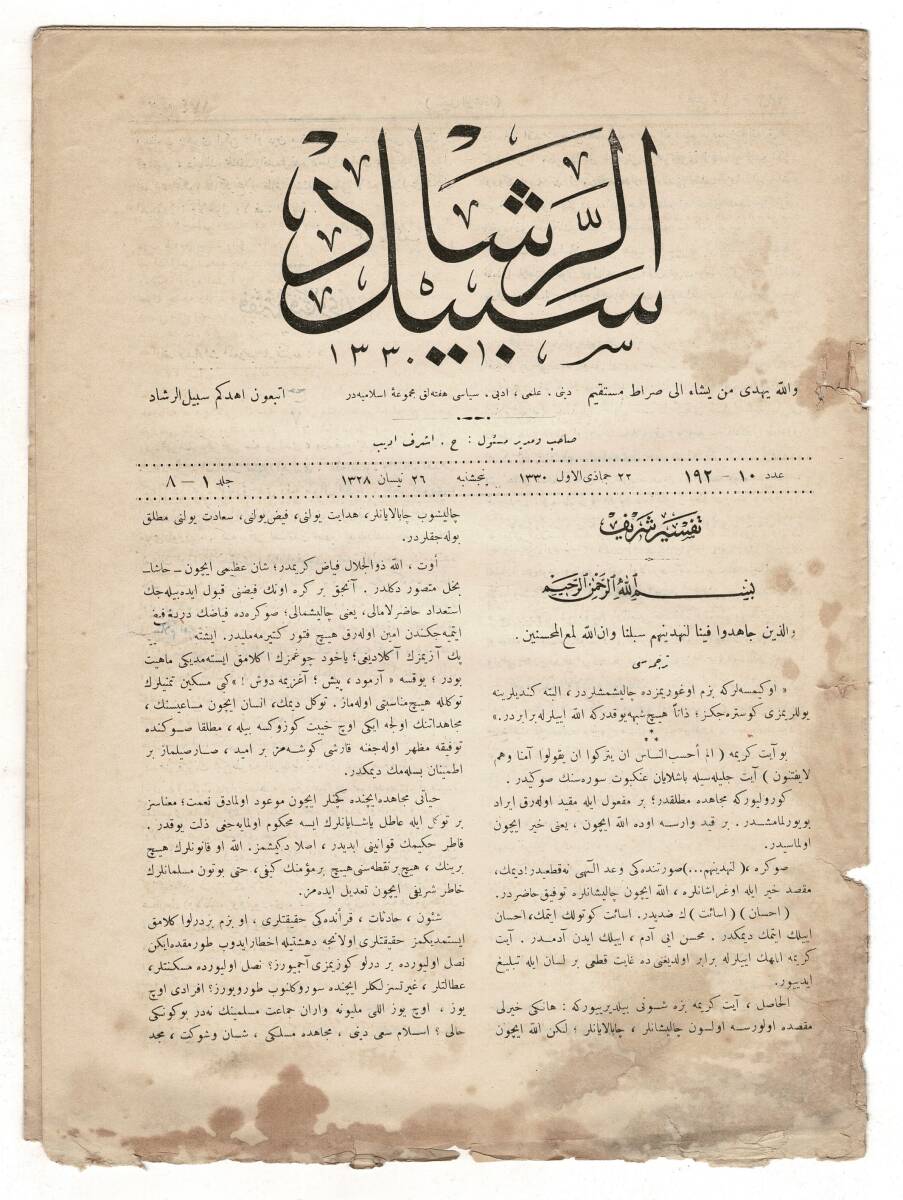 سبيل الرشاد
١٣٣٠
والله يهدى من يشاء الى صراط مستقيم
دينى ، علمى ، ادبى ، سياسى هفته‌لق مجموعهٔ اسلاميه‌در
اتبعون اهدكم سبيل الرشاد
صاحب ومدير مسئول : ح . اشرف اديب
عدد ١٠ – ١٩٢ ٢٢ جمادى الاول ١٣٣٠ پنجشنبه ٢٦ نيسان ١٣٢٨ جلد ١ – ٨
تفسير شريف
بسم الله الرحمن الرحيم
والذين جاهدوا فينا لنهدينهم سبلنا وان الله لمع المحسنين .
ترجمه‌سى
« اوكيمسه‌لركه بزم اوغوريمزده چاليشمشلردر ، البته كنديلرينه
يوللريمزى كوستره‌جكز ؛ ذاتاً هيچ شبهه يوقدركه الله اييلرله برابردر. »
بو آيت كريمه ( الم أحسب الناس ان يتركوا ان يقولوا آمنا وهم
لايفتنون ) آيت جليله‌سيله باشلايان عنكبوت سوره‌سنك صوكيدر .
كوروليوركه مجاهده مطلقدر؛ بر مفعول ايله مقيد اوله‌رق ايراد
بويورلمامشدر . بر قيد وارسه اوده الله ايچون ، يعنى خير ايچون
اولماسيدر.
صوكره ، ( لنهدينهم...) صورتنده‌كى وعد الٓهى نه قطعيدر! ديمك،
مقصد خير ايله اوغراشانلره ، الله ايچون چاليشانلره توفيق حاضردر.
( احسان ) ( اسائت ) ك ضديدر. اسائت كوتولك ايتمك، احسان
اييلك ايتمك ديمكدر . محسن ايى آدم ، اييلك ايدن آدمدر . آيت
كريمه اللهك اييلرله برابر اولديغنى ده غايت قطعى بر لسان ايله تبليغ
ايدييور.
الحاصل ، آيت كريمه بزه شونى بيلديرييوركه : هانكى خيرلى
مقصده اولورسه اولسون چاليشانلر ، چابالايانلر ؛ لكن الله ايچون
چاليشوب چابالايانلر، هدايت يولنى، فيض يولنى، سعادت يولنى مطلق
بوله‌جقلردر.
أوت ، الله ذوالجلال فياض كريمدر؛ شان عظيمى ايچون – حاشا–
بخل متصور دكلدر . آنجق بر كره اونك فيضنى قبول ايده‌بيله‌جك
استعداد حاضرلامالى، يعنى چاليشمالى؛ صوكره‌ده فياضك دريغ فيض
ايتميه‌جكندن امين اوله‌رق هيچ فتور كتيرمه‌مليدر. ايشته
پك آزيمزك آكلاديغى؛ ياخود چوغمزك اكلامق ايسته‌مديكى ماهيت
بودر ؛ يوقسه « آرمود ، پيش ؛ آغزيمه دوش ! » كى مسكين تمنيلرك
توكلله هيچ مناسبتى اوله‌ماز . توكل ديمك، انسان ايچون مساعيسنك ،
مجاهداتنك اولجه ايكى اوچ خيبت كوزوكسه بيله ، مطلقا صوكنده
توفيقه مظهر اوله‌جغنه قارشى كوشه‌مز بر اميد ، صارصيلماز بر
اطمينان بسله‌مك ديمكدر.
حياتى مجاهده ايچنده كچنلر ايچون موعود اولمادق نعمت؛ معناسز
بر توكل ايله عاطل ياشايانلرك ايسه محكوم اولمايه‌جغى ذلت يوقدر .
فاطر حكيمك قوانينى ابديدر ، اصلا دكيشمز. الله او قانونلرك هيچ
برينك ، هيچ بر نقطه‌سنى هيچ بر مؤمنك كيفى، حتى بوتون مسلمانلرك
خاطر شريفى ايچون تعديل ايده‌مز.
شئون ، حادثات ، قرآنده‌كى حقيقتلرى ، او بزم بردرلو اكلامق
ايستمديكمز حقيقتلرى اولانجه دهشتيله اخطار ايدوب طورمقده ايكن
نصل اوليورده بر درلو كوزيمزى آچميورز؟ نصل اوليورده مسكنتلر،
عطالتلر ، غيرتسزلكلر ايچنده سوروكلنوب طورويورز؟ افرادى اوچ
يوز ، اوچ يوز اللى مليونه واران جماعت مسلمينك نه‌در بوكونكى
حالى ؟ اسلام سعى دينى ، مجاهده مسلكى ، شان وشوكت ، مجد